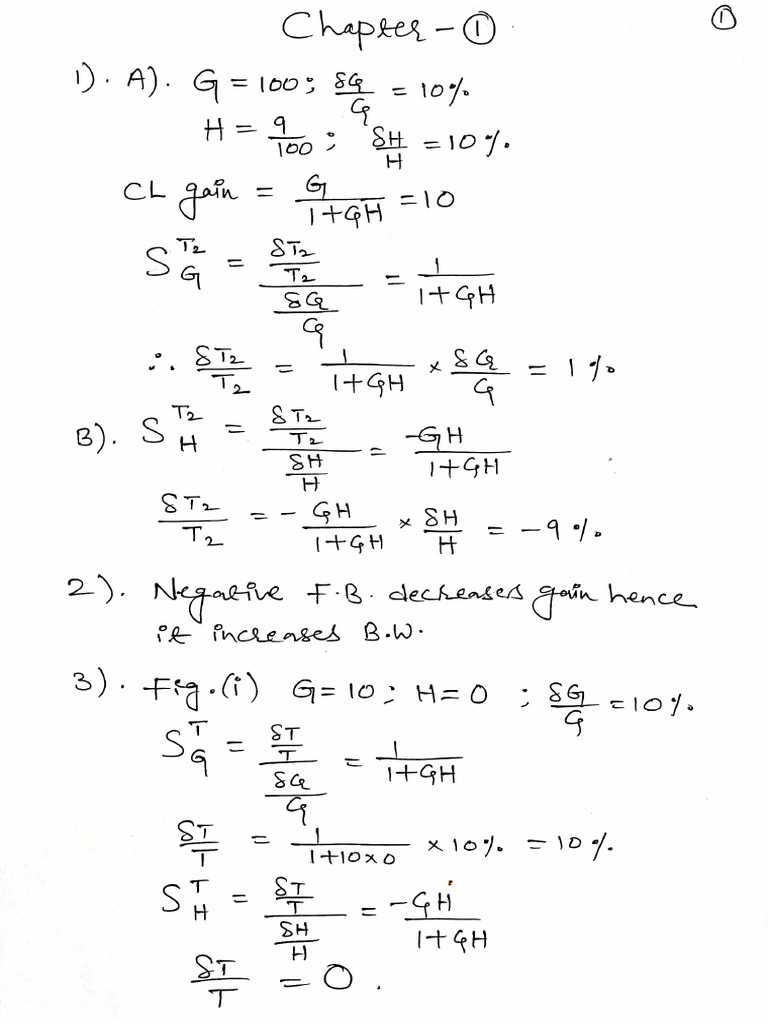 Chapter - ①
①
1). A). G = 100; δG/G = 10%
H = 9/100; δH/H = 10%.
CL gain = G/(1+GH) = 10
S^T₂_G = (δT₂/T₂)/(δG/G) = 1/(1+GH)
∴ δT₂/T₂ = 1/(1+GH) × δG/G = 1%
B). S^T₂_H = (δT₂/T₂)/(δH/H) = -GH/(1+GH)
δT₂/T₂ = - GH/(1+GH) × δH/H = -9%
2). Negative F.B. decreases gain hence
it increases B.W.
3). Fig.(i) G = 10; H = 0 ; δG/G = 10%
S^T_G = (δT/T)/(δG/G) = 1/(1+GH)
δT/T = 1/(1+10×0) × 10% = 10%.
S^T_H = (δT/T)/(δH/H) = -GH/(1+GH)
δT/T = 0.